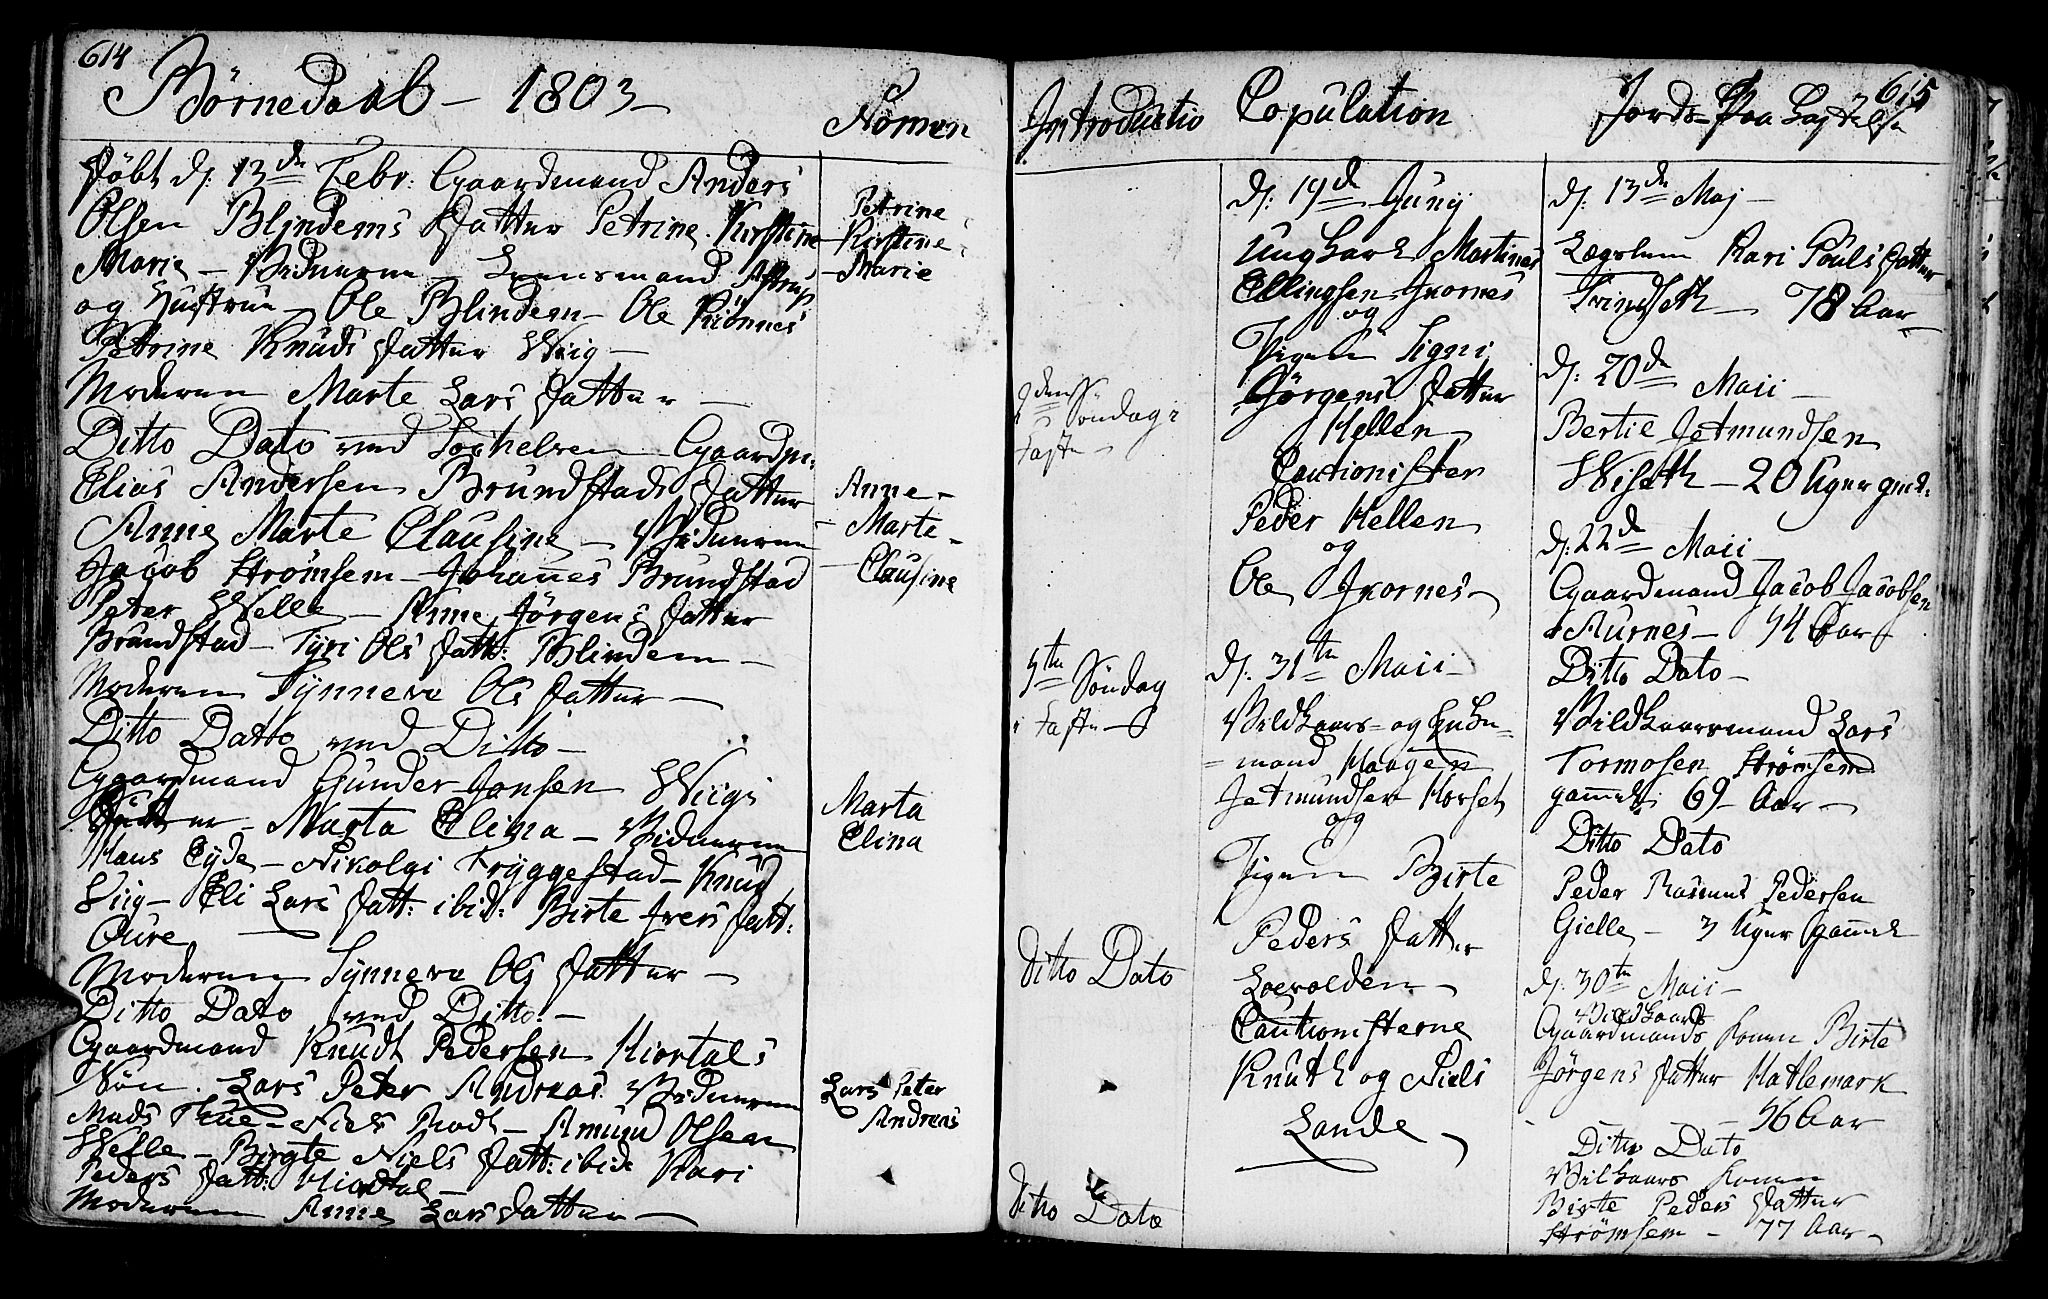 614
Börnedaab - 1803 -
Nomen
Döbt d: 13de Febr: Gaardmand Anders
Olsen Blindems Datter Petrine Kirstine
Marie - Vidnerne - Lensmand Astrup
og Hustrue - Ole Blindem - Ole Riönnes
Petrine Knuds Datter Wiig -
Moderen Marte Lars Datter -
Ditto Dato ved Gaardm:
Elias Andersen Brundstads Datter
Anne Marte Clausine - Vidnerne
Jacob Strömsem - Johannes Brundstad
Peter Welle - Anne Jörgens Datter
Brundstad - Tyri Ols Datt: Blindem -
Moderen Synneve Ols Datter -
Ditto Datto ved Ditto -
Gaardmand Gunder Jonsen Wiigs
Datter - Marta Elina - Vidnerne
Hans Eyde - Nikolai Tryggestad - Knud
Viig - Eli Lars Datt: ibid: Birte Ivers Datt:
Oure
Moderen Synneve Ols Datter -
Ditto Dato ved Ditto -
Gaardmand Knudt Pedersen Hiortals
Sön. Lars Peter Andreas. Vidnerne
Mads Thue - Niels - Amund Olsen
Welle - Birgte Niels Datt: ibid Kari
Peders Datt: Hiortal -
Moderen Anne Lars Datter -
Petrine
Kirstine
Marie
Anne -
Marte -
Clausine
Marta
Elina
Lars Peter
Andreas
615
Introductio
2den Söndag i
Faste -
5te Söndag
i Faste -
Ditto Dato
Ditto Dato
Copulation
d: 19de Junij
Ungkarl Martinus
Ellingsen Jvornes
og
Pigen Signi
Jörgens Datter
Hellen
Cautionister
Peder Hellen
og
Ole Jvornes -
d: 31te Maii -
Vildkaars- og Enke=
=mand Haagen
Jetmundsen Horset
og
Pigen Birte
Peders Datter
Loevolden -
Cautionisterne
Knuth og Niels
Lande -
Jords-Paa Kastelse
d: 13de Maj -
Lægslem Kari Pouls Datter
Trindseth - 78 Aar -
d: 20de Maii -
Bertie Jetmundsen
Wiseth - 20 Uger gml:
d: 22de Maii -
Gaardmand Jacob Jacobsen
Aurnes - 54 Aar
Ditto Dato -
Vildkaarsmand Lars
Tormosen Strömsem
gammel 69 - Aar -
Ditto Dato
Peder Rasmus Pedersen
Gielle - 3 Uger gammel
d: 30te Maii -
Vildkaars
Gaardmands Konen Birte
Jörgens Datter Hatlemark
- 56 Aar
Ditto Dato
Vilkaars Konen
Birte Peders Datter
Strömsem - 77 Aar -